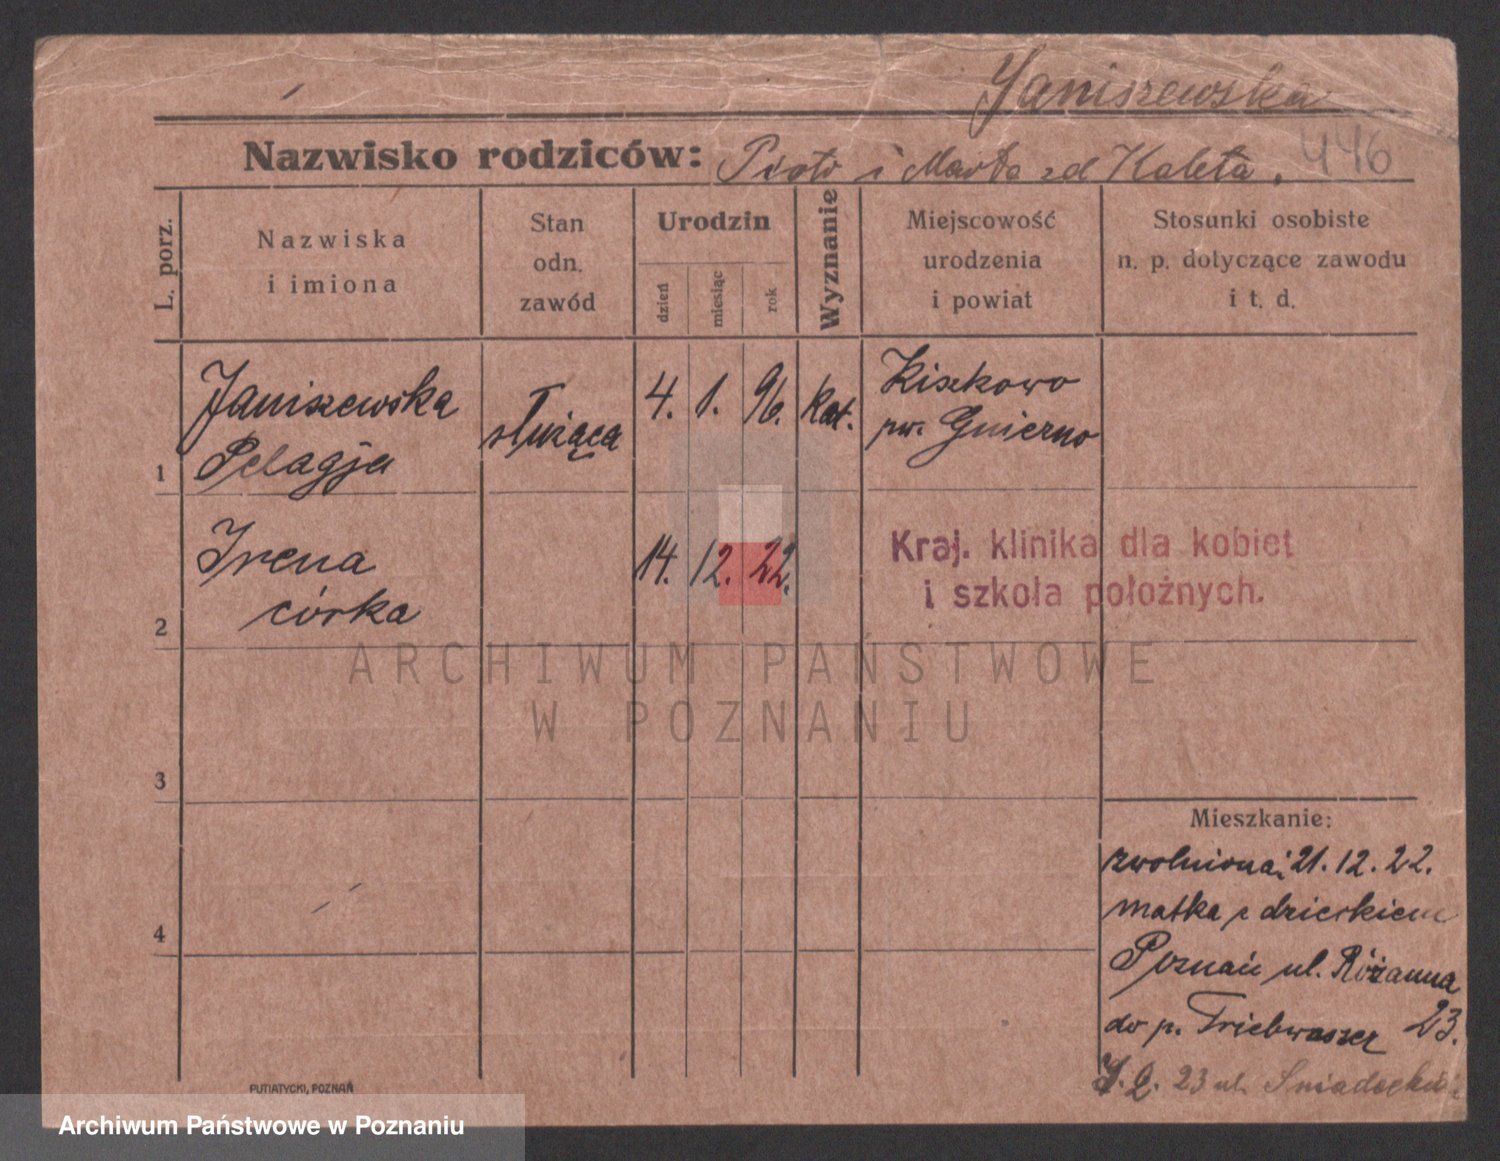 Janiszewska
446
Nazwisko rodziców: Piotr i Marta zd Kaleta.
L. porz.
Nazwiska
i imiona
Stan
odn.
zawód
Urodzin
dzień
miesiąc
rok
Wyznanie
Miejscowość
urodzenia
i powiat
Stosunki osobiste
n. p. dotyczące zawodu
i t. d.
1
Janiszewska
Pelagja
służąca
4. 1. 96.
Kat.
Kiszkowo
pw. Gniezno
2
Irena
córka
14. 12. 22.
Kraj. klinika dla kobiet
i szkoła położnych.
ARCHIWUM PAŃSTWOWE
W POZNANIU
3
4
Mieszkanie:
zwolniona: 21. 12. 22.
matka z dzieckiem
Poznań ul. Różanna
do p. Triebwasser 23.
23 ul. Śniadeckich
PUTIATYCKI, POZNAŃ
Archiwum Państwowe w Poznaniu